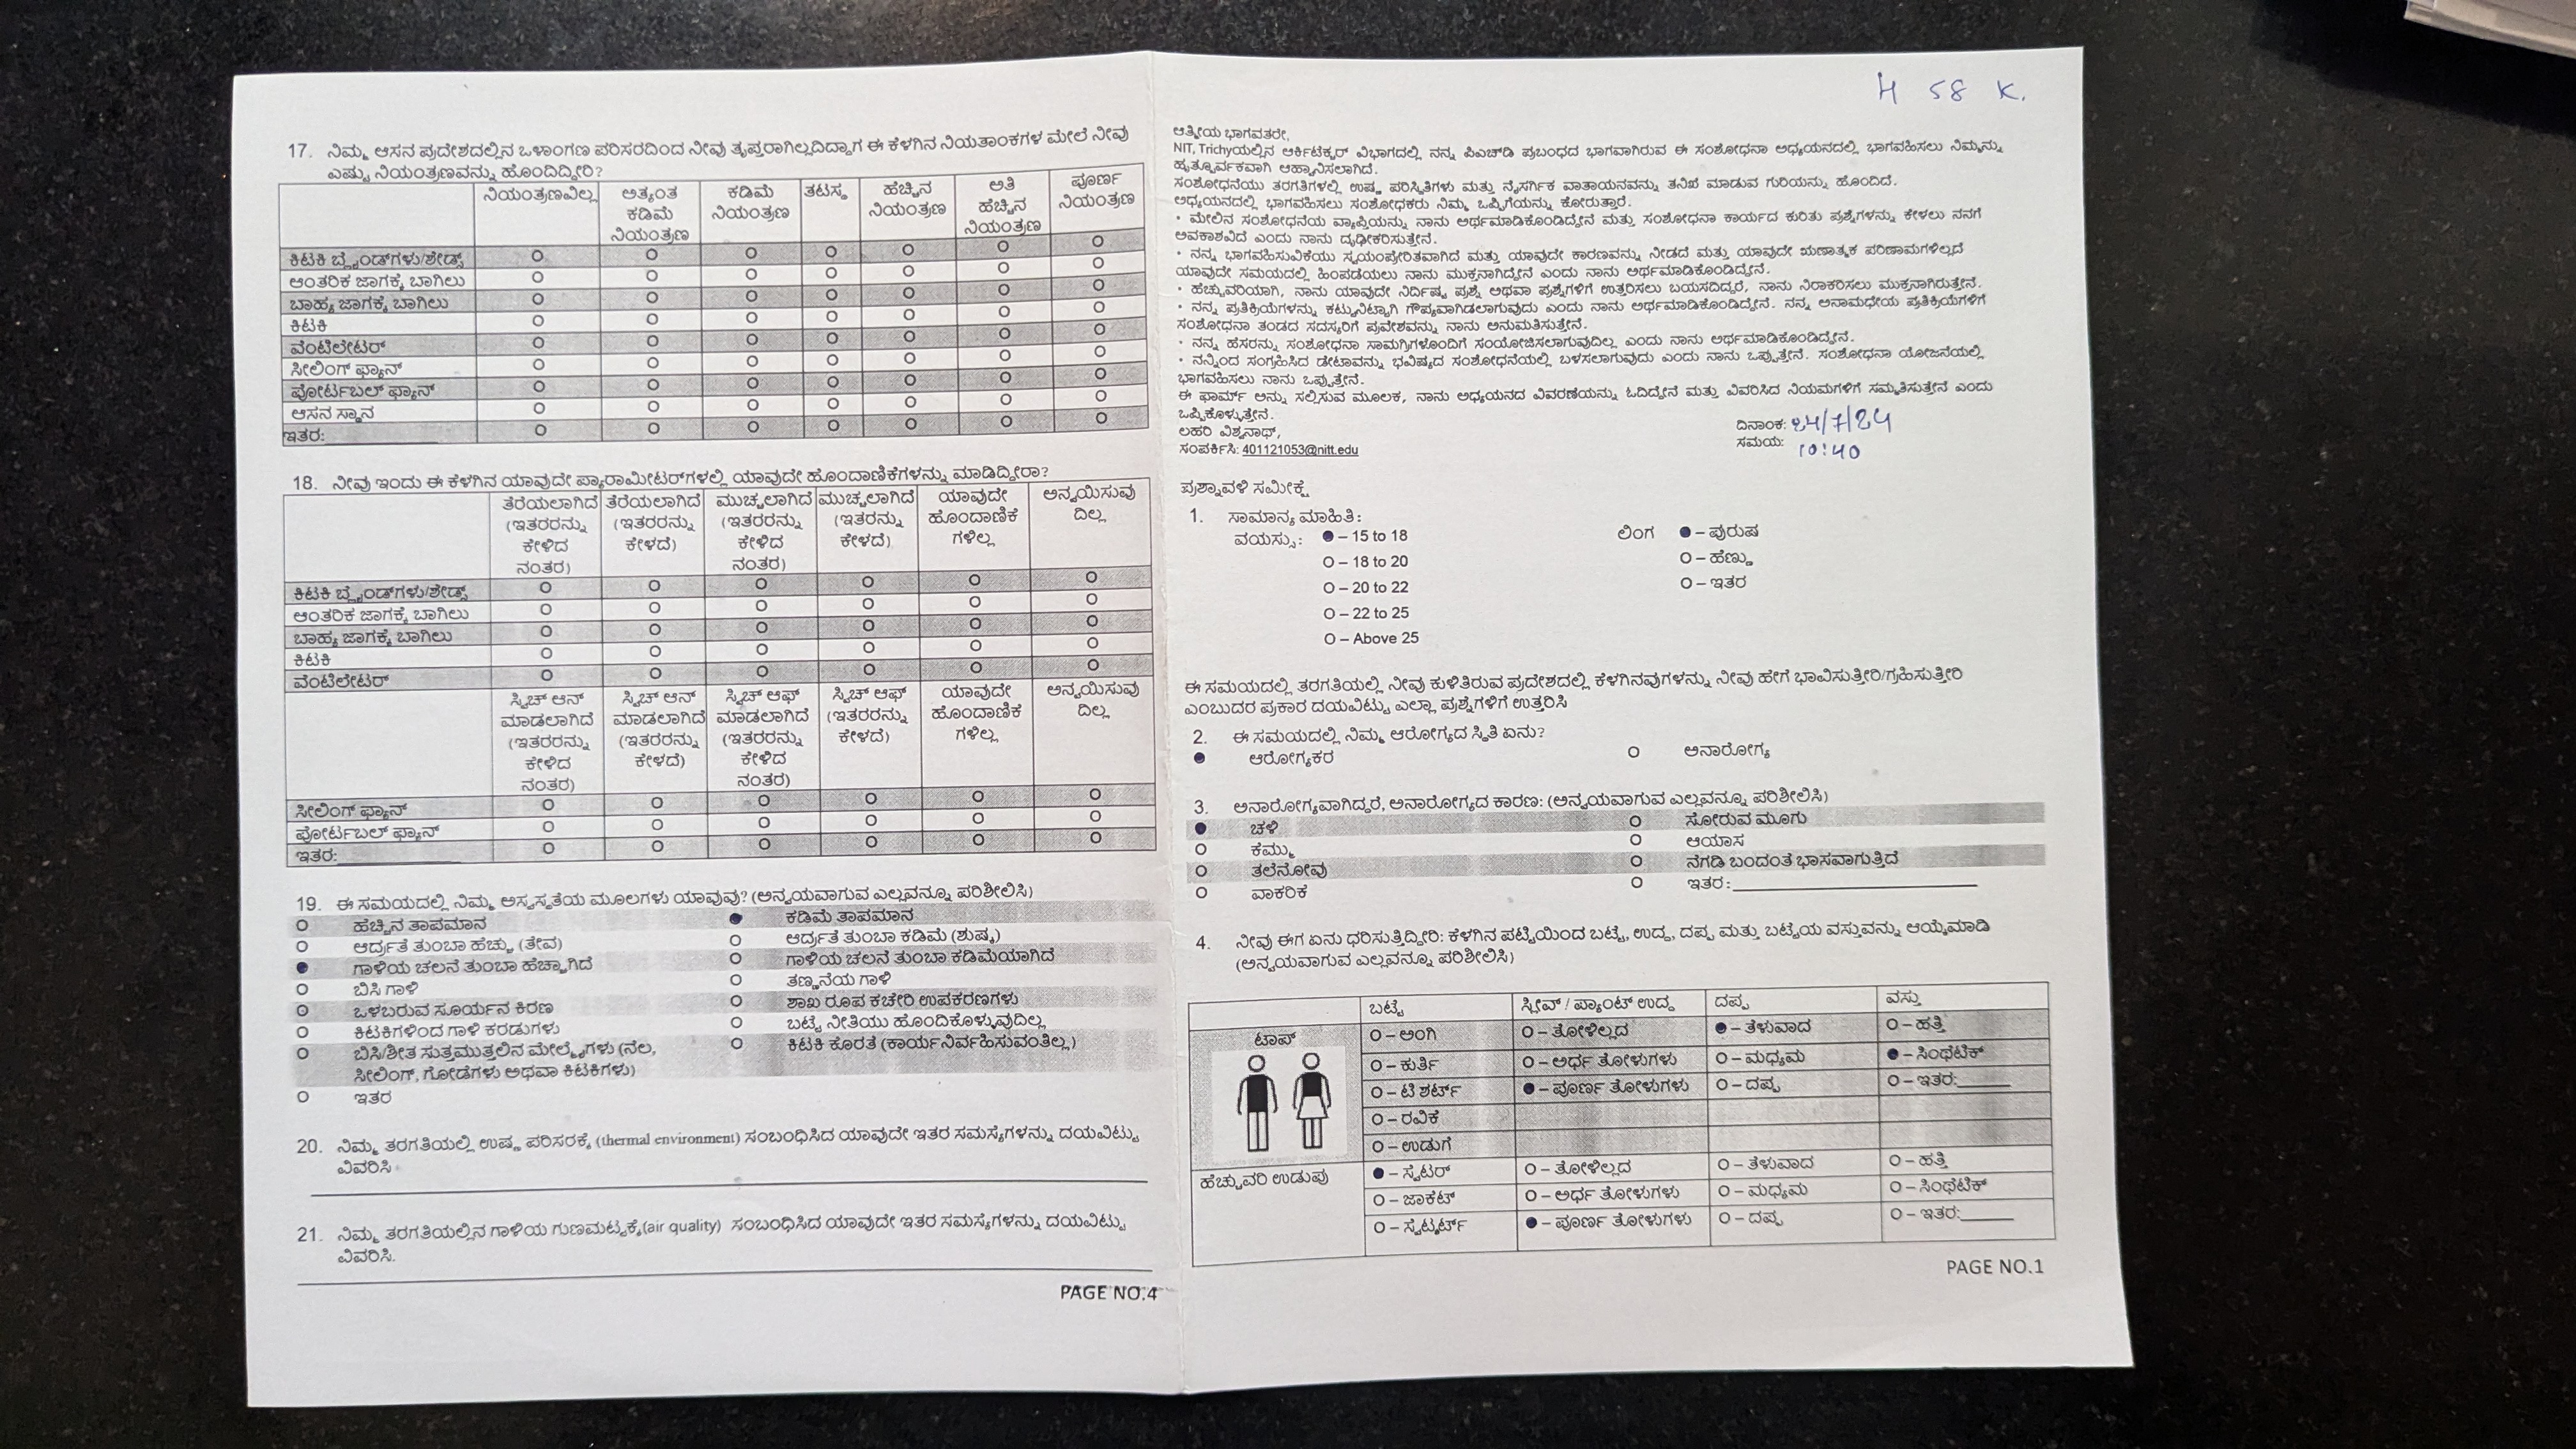 17. ನಿಮ್ಮ ಆಸನ ಪ್ರದೇಶದಲ್ಲಿನ ಒಳಾಂಗಣ ಪರಿಸರದಿಂದ ನೀವು ತೃಪ್ತರಾಗಿಲ್ಲದಿದ್ದಾಗ ಈ ಕೆಳಗಿನ ನಿಯತಾಂಕಗಳ ಮೇಲೆ ನೀವು
ಎಷ್ಟು ನಿಯಂತ್ರಣವನ್ನು ಹೊಂದಿದ್ದೀರಿ?
ನಿಯಂತ್ರಣವಿಲ್ಲ ಅತ್ಯಂತ ಕಡಿಮೆ ನಿಯಂತ್ರಣ ಕಡಿಮೆ ನಿಯಂತ್ರಣ ತಟಸ್ಥ ಹೆಚ್ಚಿನ ನಿಯಂತ್ರಣ ಅತಿ ಹೆಚ್ಚಿನ ನಿಯಂತ್ರಣ ಪೂರ್ಣ ನಿಯಂತ್ರಣ
ಕಿಟಕಿ ಬ್ಲೈಂಡ್‌ಗಳು/ಶೇಡ್ಸ್ O O O O O O O
ಆಂತರಿಕ ಜಾಗಕ್ಕೆ ಬಾಗಿಲು O O O O O O O
ಬಾಹ್ಯ ಜಾಗಕ್ಕೆ ಬಾಗಿಲು O O O O O O O
ಕಿಟಕಿ O O O O O O O
ವೆಂಟಿಲೇಟರ್ O O O O O O O
ಸೀಲಿಂಗ್ ಫ್ಯಾನ್ O O O O O O O
ಪೋರ್ಟಬಲ್ ಫ್ಯಾನ್ O O O O O O O
ಆಸನ ಸ್ಥಾನ O O O O O O O
ಇತರ: O O O O O O O
18. ನೀವು ಇಂದು ಈ ಕೆಳಗಿನ ಯಾವುದೇ ಪ್ಯಾರಾಮೀಟರ್‌ಗಳಲ್ಲಿ ಯಾವುದೇ ಹೊಂದಾಣಿಕೆಗಳನ್ನು ಮಾಡಿದ್ದೀರಾ?
ತೆರೆಯಲಾಗಿದೆ (ಇತರರನ್ನು ಕೇಳಿದ ನಂತರ) ತೆರೆಯಲಾಗಿದೆ (ಇತರರನ್ನು ಕೇಳದೆ) ಮುಚ್ಚಲಾಗಿದೆ (ಇತರರನ್ನು ಕೇಳಿದ ನಂತರ) ಮುಚ್ಚಲಾಗಿದೆ (ಇತರನ್ನು ಕೇಳದೆ) ಯಾವುದೇ ಹೊಂದಾಣಿಕೆ ಗಳಿಲ್ಲ ಅನ್ವಯಿಸುವು ದಿಲ್ಲ
ಕಿಟಕಿ ಬ್ಲೈಂಡ್‌ಗಳು/ಶೇಡ್ಸ್ O O O O O O
ಆಂತರಿಕ ಜಾಗಕ್ಕೆ ಬಾಗಿಲು O O O O O O
ಬಾಹ್ಯ ಜಾಗಕ್ಕೆ ಬಾಗಿಲು O O O O O O
ಕಿಟಕಿ O O O O O O
ವೆಂಟಿಲೇಟರ್ O O O O O O
ಸ್ವಿಚ್ ಆನ್ ಮಾಡಲಾಗಿದೆ (ಇತರರನ್ನು ಕೇಳಿದ ನಂತರ) ಸ್ವಿಚ್ ಆನ್ ಮಾಡಲಾಗಿದೆ (ಇತರರನ್ನು ಕೇಳದೆ) ಸ್ವಿಚ್ ಆಫ್ ಮಾಡಲಾಗಿದೆ (ಇತರರನ್ನು ಕೇಳಿದ ನಂತರ) ಸ್ವಿಚ್ ಆಫ್ (ಇತರರನ್ನು ಕೇಳದೆ) ಯಾವುದೇ ಹೊಂದಾಣಿಕೆ ಗಳಿಲ್ಲ ಅನ್ವಯಿಸುವು ದಿಲ್ಲ
ಸೀಲಿಂಗ್ ಫ್ಯಾನ್ O O O O O O
ಪೋರ್ಟಬಲ್ ಫ್ಯಾನ್ O O O O O O
ಇತರ: O O O O O O
19. ಈ ಸಮಯದಲ್ಲಿ ನಿಮ್ಮ ಅಸ್ವಸ್ಥತೆಯ ಮೂಲಗಳು ಯಾವುವು? (ಅನ್ವಯವಾಗುವ ಎಲ್ಲವನ್ನೂ ಪರಿಶೀಲಿಸಿ)
O ಹೆಚ್ಚಿನ ತಾಪಮಾನ ● ಕಡಿಮೆ ತಾಪಮಾನ
O ಆರ್ದ್ರತೆ ತುಂಬಾ ಹೆಚ್ಚು (ತೇವ) O ಆರ್ದ್ರತೆ ತುಂಬಾ ಕಡಿಮೆ (ಶುಷ್ಕ)
● ಗಾಳಿಯ ಚಲನೆ ತುಂಬಾ ಹೆಚ್ಚಾಗಿದೆ O ಗಾಳಿಯ ಚಲನೆ ತುಂಬಾ ಕಡಿಮೆಯಾಗಿದೆ
O ಬಿಸಿ ಗಾಳಿ O ತಣ್ಣನೆಯ ಗಾಳಿ
O ಒಳಬರುವ ಸೂರ್ಯನ ಕಿರಣ O ಶಾಖ ರೂಪ ಕಚೇರಿ ಉಪಕರಣಗಳು
O ಕಿಟಕಿಗಳಿಂದ ಗಾಳಿ ಕರಡುಗಳು O ಬಟ್ಟೆ ನೀತಿಯು ಹೊಂದಿಕೊಳ್ಳುವುದಿಲ್ಲ
O ಬಿಸಿ/ಶೀತ ಸುತ್ತಮುತ್ತಲಿನ ಮೇಲ್ಮೈಗಳು (ನೆಲ, O ಕಿಟಕಿ ಕೊರತೆ (ಕಾರ್ಯನಿರ್ವಹಿಸುವಂತಿಲ್ಲ)
ಸೀಲಿಂಗ್, ಗೋಡೆಗಳು ಅಥವಾ ಕಿಟಕಿಗಳು)
O ಇತರ
20. ನಿಮ್ಮ ತರಗತಿಯಲ್ಲಿ ಉಷ್ಣ ಪರಿಸರಕ್ಕೆ (thermal environment) ಸಂಬಂಧಿಸಿದ ಯಾವುದೇ ಇತರ ಸಮಸ್ಯೆಗಳನ್ನು ದಯವಿಟ್ಟು
ವಿವರಿಸಿ
21. ನಿಮ್ಮ ತರಗತಿಯಲ್ಲಿನ ಗಾಳಿಯ ಗುಣಮಟ್ಟಕ್ಕೆ(air quality) ಸಂಬಂಧಿಸಿದ ಯಾವುದೇ ಇತರ ಸಮಸ್ಯೆಗಳನ್ನು ದಯವಿಟ್ಟು
ವಿವರಿಸಿ.
PAGE NO.4
H 58 K.
ಆತ್ಮೀಯ ಭಾಗವತರೇ,
NIT, Trichyಯಲ್ಲಿನ ಆರ್ಕಿಟೆಕ್ಚರ್ ವಿಭಾಗದಲ್ಲಿ ನನ್ನ ಪಿಎಚ್‌ಡಿ ಪ್ರಬಂಧದ ಭಾಗವಾಗಿರುವ ಈ ಸಂಶೋಧನಾ ಅಧ್ಯಯನದಲ್ಲಿ ಭಾಗವಹಿಸಲು ನಿಮ್ಮನ್ನು
ಹೃತ್ಪೂರ್ವಕವಾಗಿ ಆಹ್ವಾನಿಸಲಾಗಿದೆ.
ಸಂಶೋಧನೆಯು ತರಗತಿಗಳಲ್ಲಿ ಉಷ್ಣ ಪರಿಸ್ಥಿತಿಗಳು ಮತ್ತು ನೈಸರ್ಗಿಕ ವಾತಾಯನವನ್ನು ತನಿಖೆ ಮಾಡುವ ಗುರಿಯನ್ನು ಹೊಂದಿದೆ.
ಅಧ್ಯಯನದಲ್ಲಿ ಭಾಗವಹಿಸಲು ಸಂಶೋಧಕರು ನಿಮ್ಮ ಒಪ್ಪಿಗೆಯನ್ನು ಕೋರುತ್ತಾರೆ.
• ಮೇಲಿನ ಸಂಶೋಧನೆಯ ವ್ಯಾಪ್ತಿಯನ್ನು ನಾನು ಅರ್ಥಮಾಡಿಕೊಂಡಿದ್ದೇನೆ ಮತ್ತು ಸಂಶೋಧನಾ ಕಾರ್ಯದ ಕುರಿತು ಪ್ರಶ್ನೆಗಳನ್ನು ಕೇಳಲು ನನಗೆ
ಅವಕಾಶವಿದೆ ಎಂದು ನಾನು ದೃಢೀಕರಿಸುತ್ತೇನೆ.
• ನನ್ನ ಭಾಗವಹಿಸುವಿಕೆಯು ಸ್ವಯಂಪ್ರೇರಿತವಾಗಿದೆ ಮತ್ತು ಯಾವುದೇ ಕಾರಣವನ್ನು ನೀಡದೆ ಮತ್ತು ಯಾವುದೇ ಋಣಾತ್ಮಕ ಪರಿಣಾಮಗಳಿಲ್ಲದೆ
ಯಾವುದೇ ಸಮಯದಲ್ಲಿ ಹಿಂಪಡೆಯಲು ನಾನು ಮುಕ್ತನಾಗಿದ್ದೇನೆ ಎಂದು ನಾನು ಅರ್ಥಮಾಡಿಕೊಂಡಿದ್ದೇನೆ.
• ಹೆಚ್ಚುವರಿಯಾಗಿ, ನಾನು ಯಾವುದೇ ನಿರ್ದಿಷ್ಟ ಪ್ರಶ್ನೆ ಅಥವಾ ಪ್ರಶ್ನೆಗಳಿಗೆ ಉತ್ತರಿಸಲು ಬಯಸದಿದ್ದರೆ, ನಾನು ನಿರಾಕರಿಸಲು ಮುಕ್ತನಾಗಿರುತ್ತೇನೆ.
• ನನ್ನ ಪ್ರತಿಕ್ರಿಯೆಗಳನ್ನು ಕಟ್ಟುನಿಟ್ಟಾಗಿ ಗೌಪ್ಯವಾಗಿಡಲಾಗುವುದು ಎಂದು ನಾನು ಅರ್ಥಮಾಡಿಕೊಂಡಿದ್ದೇನೆ. ನನ್ನ ಅನಾಮಧೇಯ ಪ್ರತಿಕ್ರಿಯೆಗಳಿಗೆ
ಸಂಶೋಧನಾ ತಂಡದ ಸದಸ್ಯರಿಗೆ ಪ್ರವೇಶವನ್ನು ನಾನು ಅನುಮತಿಸುತ್ತೇನೆ.
• ನನ್ನ ಹೆಸರನ್ನು ಸಂಶೋಧನಾ ಸಾಮಗ್ರಿಗಳೊಂದಿಗೆ ಸಂಯೋಜಿಸಲಾಗುವುದಿಲ್ಲ ಎಂದು ನಾನು ಅರ್ಥಮಾಡಿಕೊಂಡಿದ್ದೇನೆ.
• ನನ್ನಿಂದ ಸಂಗ್ರಹಿಸಿದ ಡೇಟಾವನ್ನು ಭವಿಷ್ಯದ ಸಂಶೋಧನೆಯಲ್ಲಿ ಬಳಸಲಾಗುವುದು ಎಂದು ನಾನು ಒಪ್ಪುತ್ತೇನೆ. ಸಂಶೋಧನಾ ಯೋಜನೆಯಲ್ಲಿ
ಭಾಗವಹಿಸಲು ನಾನು ಒಪ್ಪುತ್ತೇನೆ.
ಈ ಫಾರ್ಮ್ ಅನ್ನು ಸಲ್ಲಿಸುವ ಮೂಲಕ, ನಾನು ಅಧ್ಯಯನದ ವಿವರಣೆಯನ್ನು ಓದಿದ್ದೇನೆ ಮತ್ತು ವಿವರಿಸಿದ ನಿಯಮಗಳಿಗೆ ಸಮ್ಮತಿಸುತ್ತೇನೆ ಎಂದು
ಒಪ್ಪಿಕೊಳ್ಳುತ್ತೇನೆ.
ಲಹರಿ ವಿಶ್ವನಾಥ್,
ಸಂಪರ್ಕಿಸಿ: 401121053@nitt.edu
ದಿನಾಂಕ: 24/7/24
ಸಮಯ: 10:40
ಪ್ರಶ್ನಾವಳಿ ಸಮೀಕ್ಷೆ
1. ಸಾಮಾನ್ಯ ಮಾಹಿತಿ:
ವಯಸ್ಸು: ● – 15 to 18 ಲಿಂಗ ● – ಪುರುಷ
O – 18 to 20 O – ಹೆಣ್ಣು
O – 20 to 22 O – ಇತರ
O – 22 to 25
O – Above 25
ಈ ಸಮಯದಲ್ಲಿ ತರಗತಿಯಲ್ಲಿ ನೀವು ಕುಳಿತಿರುವ ಪ್ರದೇಶದಲ್ಲಿ ಕೆಳಗಿನವುಗಳನ್ನು ನೀವು ಹೇಗೆ ಭಾವಿಸುತ್ತೀರಿ/ಗ್ರಹಿಸುತ್ತೀರಿ
ಎಂಬುದರ ಪ್ರಕಾರ ದಯವಿಟ್ಟು ಎಲ್ಲಾ ಪ್ರಶ್ನೆಗಳಿಗೆ ಉತ್ತರಿಸಿ
2. ಈ ಸಮಯದಲ್ಲಿ ನಿಮ್ಮ ಆರೋಗ್ಯದ ಸ್ಥಿತಿ ಏನು?
● ಆರೋಗ್ಯಕರ O ಅನಾರೋಗ್ಯ
3. ಅನಾರೋಗ್ಯವಾಗಿದ್ದರೆ, ಅನಾರೋಗ್ಯದ ಕಾರಣ: (ಅನ್ವಯವಾಗುವ ಎಲ್ಲವನ್ನೂ ಪರಿಶೀಲಿಸಿ)
● ಚಳಿ O ಸೋರುವ ಮೂಗು
O ಕೆಮ್ಮು O ಆಯಾಸ
O ತಲೆನೋವು O ನೆಗಡಿ ಬಂದಂತೆ ಭಾಸವಾಗುತ್ತಿದೆ
O ವಾಕರಿಕೆ O ಇತರ:
4. ನೀವು ಈಗ ಏನು ಧರಿಸುತ್ತಿದ್ದೀರಿ: ಕೆಳಗಿನ ಪಟ್ಟಿಯಿಂದ ಬಟ್ಟೆ, ಉದ್ದ, ದಪ್ಪ ಮತ್ತು ಬಟ್ಟೆಯ ವಸ್ತುವನ್ನು ಆಯ್ಕೆಮಾಡಿ
(ಅನ್ವಯವಾಗುವ ಎಲ್ಲವನ್ನೂ ಪರಿಶೀಲಿಸಿ)
ಬಟ್ಟೆ ಸ್ಲೀವ್ / ಪ್ಯಾಂಟ್ ಉದ್ದ ದಪ್ಪ ವಸ್ತು
ಟಾಪ್ O – ಅಂಗಿ O – ತೋಳಿಲ್ಲದ ● – ತೆಳುವಾದ O – ಹತ್ತಿ
O – ಕುರ್ತಿ O – ಅರ್ಧ ತೋಳುಗಳು O – ಮಧ್ಯಮ ● – ಸಿಂಥೆಟಿಕ್
O – ಟಿ ಶರ್ಟ್ ● – ಪೂರ್ಣ ತೋಳುಗಳು O – ದಪ್ಪ O – ಇತರ:
O – ರವಿಕೆ
O – ಉಡುಗೆ
ಹೆಚ್ಚುವರಿ ಉಡುಪು ● – ಸ್ವೆಟರ್ O – ತೋಳಿಲ್ಲದ O – ತೆಳುವಾದ O – ಹತ್ತಿ
O – ಜಾಕೆಟ್ O – ಅರ್ಧ ತೋಳುಗಳು O – ಮಧ್ಯಮ O – ಸಿಂಥೆಟಿಕ್
O – ಸ್ವೆಟ್ಶರ್ಟ್ ● – ಪೂರ್ಣ ತೋಳುಗಳು O – ದಪ್ಪ O – ಇತರ:
PAGE NO.1